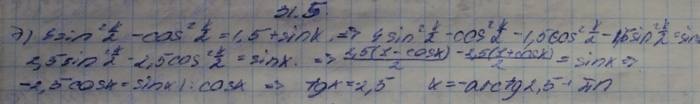 31.5.
д) 4sin²x/2 - cos²x/2 = 1,5 + sinx. => 4sin²x/2 - cos²x/2 - 1,5cos²x/2 - 1,5sin²x/2 = sin
2,5sin²x/2 - 2,5cos²x/2 = sinx. => 2,5(1-cosx)/2 - 2,5(1+cosx)/2 = sinx =>
-2,5cosx = sinx |: cosx => tgx = 2,5 x = -arctg2,5 + πn